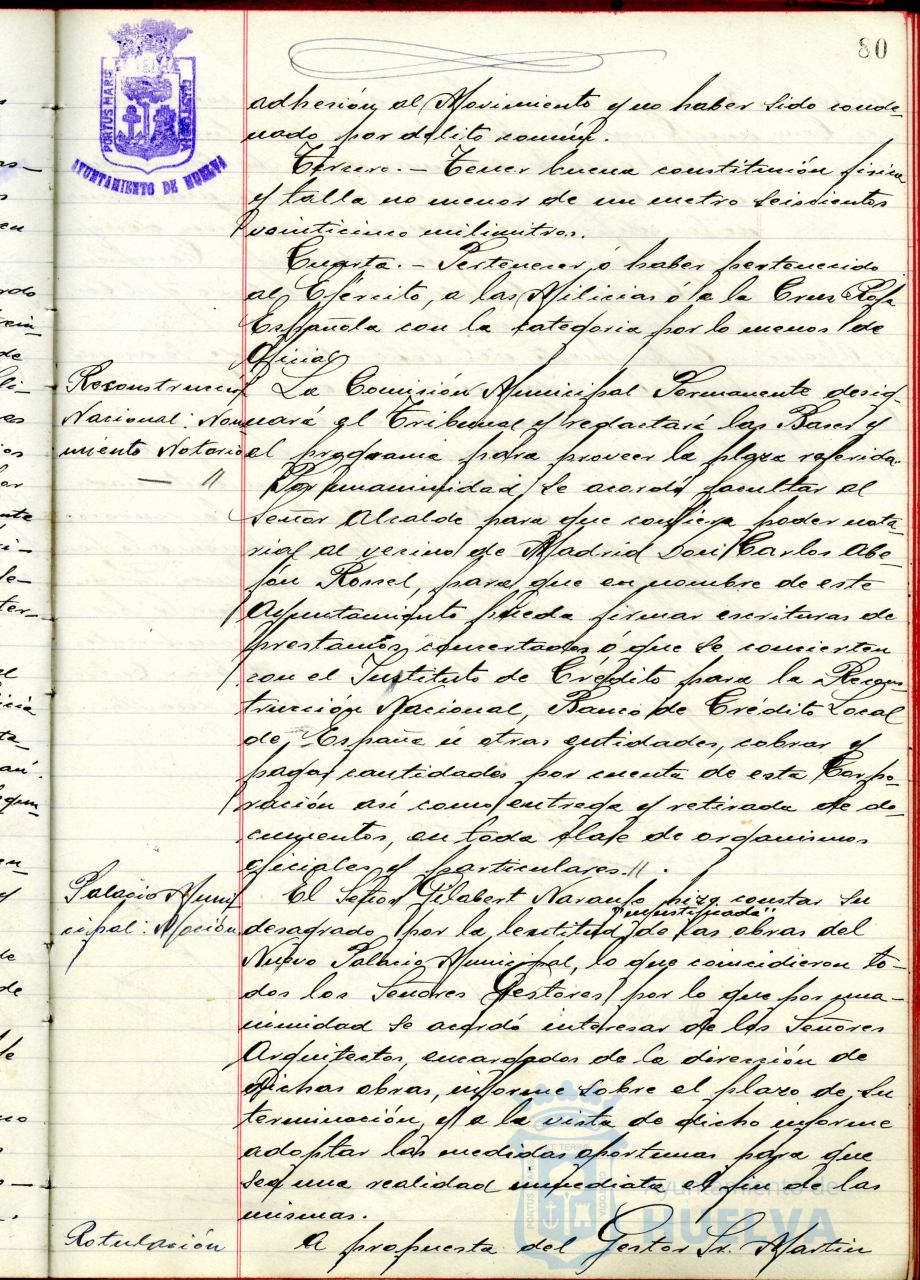 80
PORTUS MARIS ET TERRAE CUSTODIA
AYUNTAMIENTO DE HUELVA
adhesión al Movimiento y no haber sido conde-
nado por delito común.
Tercero.- Tener buena constitución física
y talla no menor de un metro seiscientos
veinticinco milimitros.
Cuarta.- Pertenecer ó haber pertenecido
al Ejército, a las Milicias ó a la Cruz Roja
Española con la categoria por lo menos de
Oficial
Reconstrucción
Nacional: Nom-
miento Notario
— "
La Comisión Municipal Permanente desig-
nará el Tribunal y redactará las Bases y
el programa para proveer la plaza referida.
Por unanimidad se acordó facultar al
Señor Alcalde para que confiera poder nota-
rial al vecino de Madrid Don Carlos Abe-
jón Rossel, para que en nombre de este
Ayuntamiento pueda firmar escrituras de
prestamos concertados ó que se concierten
con el Instituto de Crédito para la Recons-
trucción Nacional, Banco de Crédito Local
de España ú otras entidades, cobrar y
pagar cantidades por cuenta de esta Corpo-
ración así como entrega y retirada de do-
cumentos, en toda clase de organismos
oficiales y particulares.".
Palacio Muni-
cipal: Moción
El Señor Gilabert Naranjo hizo constar su
desagrado por la lentitud "injustificada" de las obras del
Nuevo Palacio Municipal, lo que coincidieron to-
dos los Señores Gestores, por lo que por una-
nimidad se acordó interesar de los Señores
Arquitectos, encargados de la dirección de
dichas obras, informe sobre el plazo de su
terminación, y a la vista de dicho informe
adoptar las medidas oportunas para que
sea una realidad inmediata el fin de las
mismas.
Rotulación
A propuesta del Gestor Sr. Martin
Ayuntamiento de
HUELVA